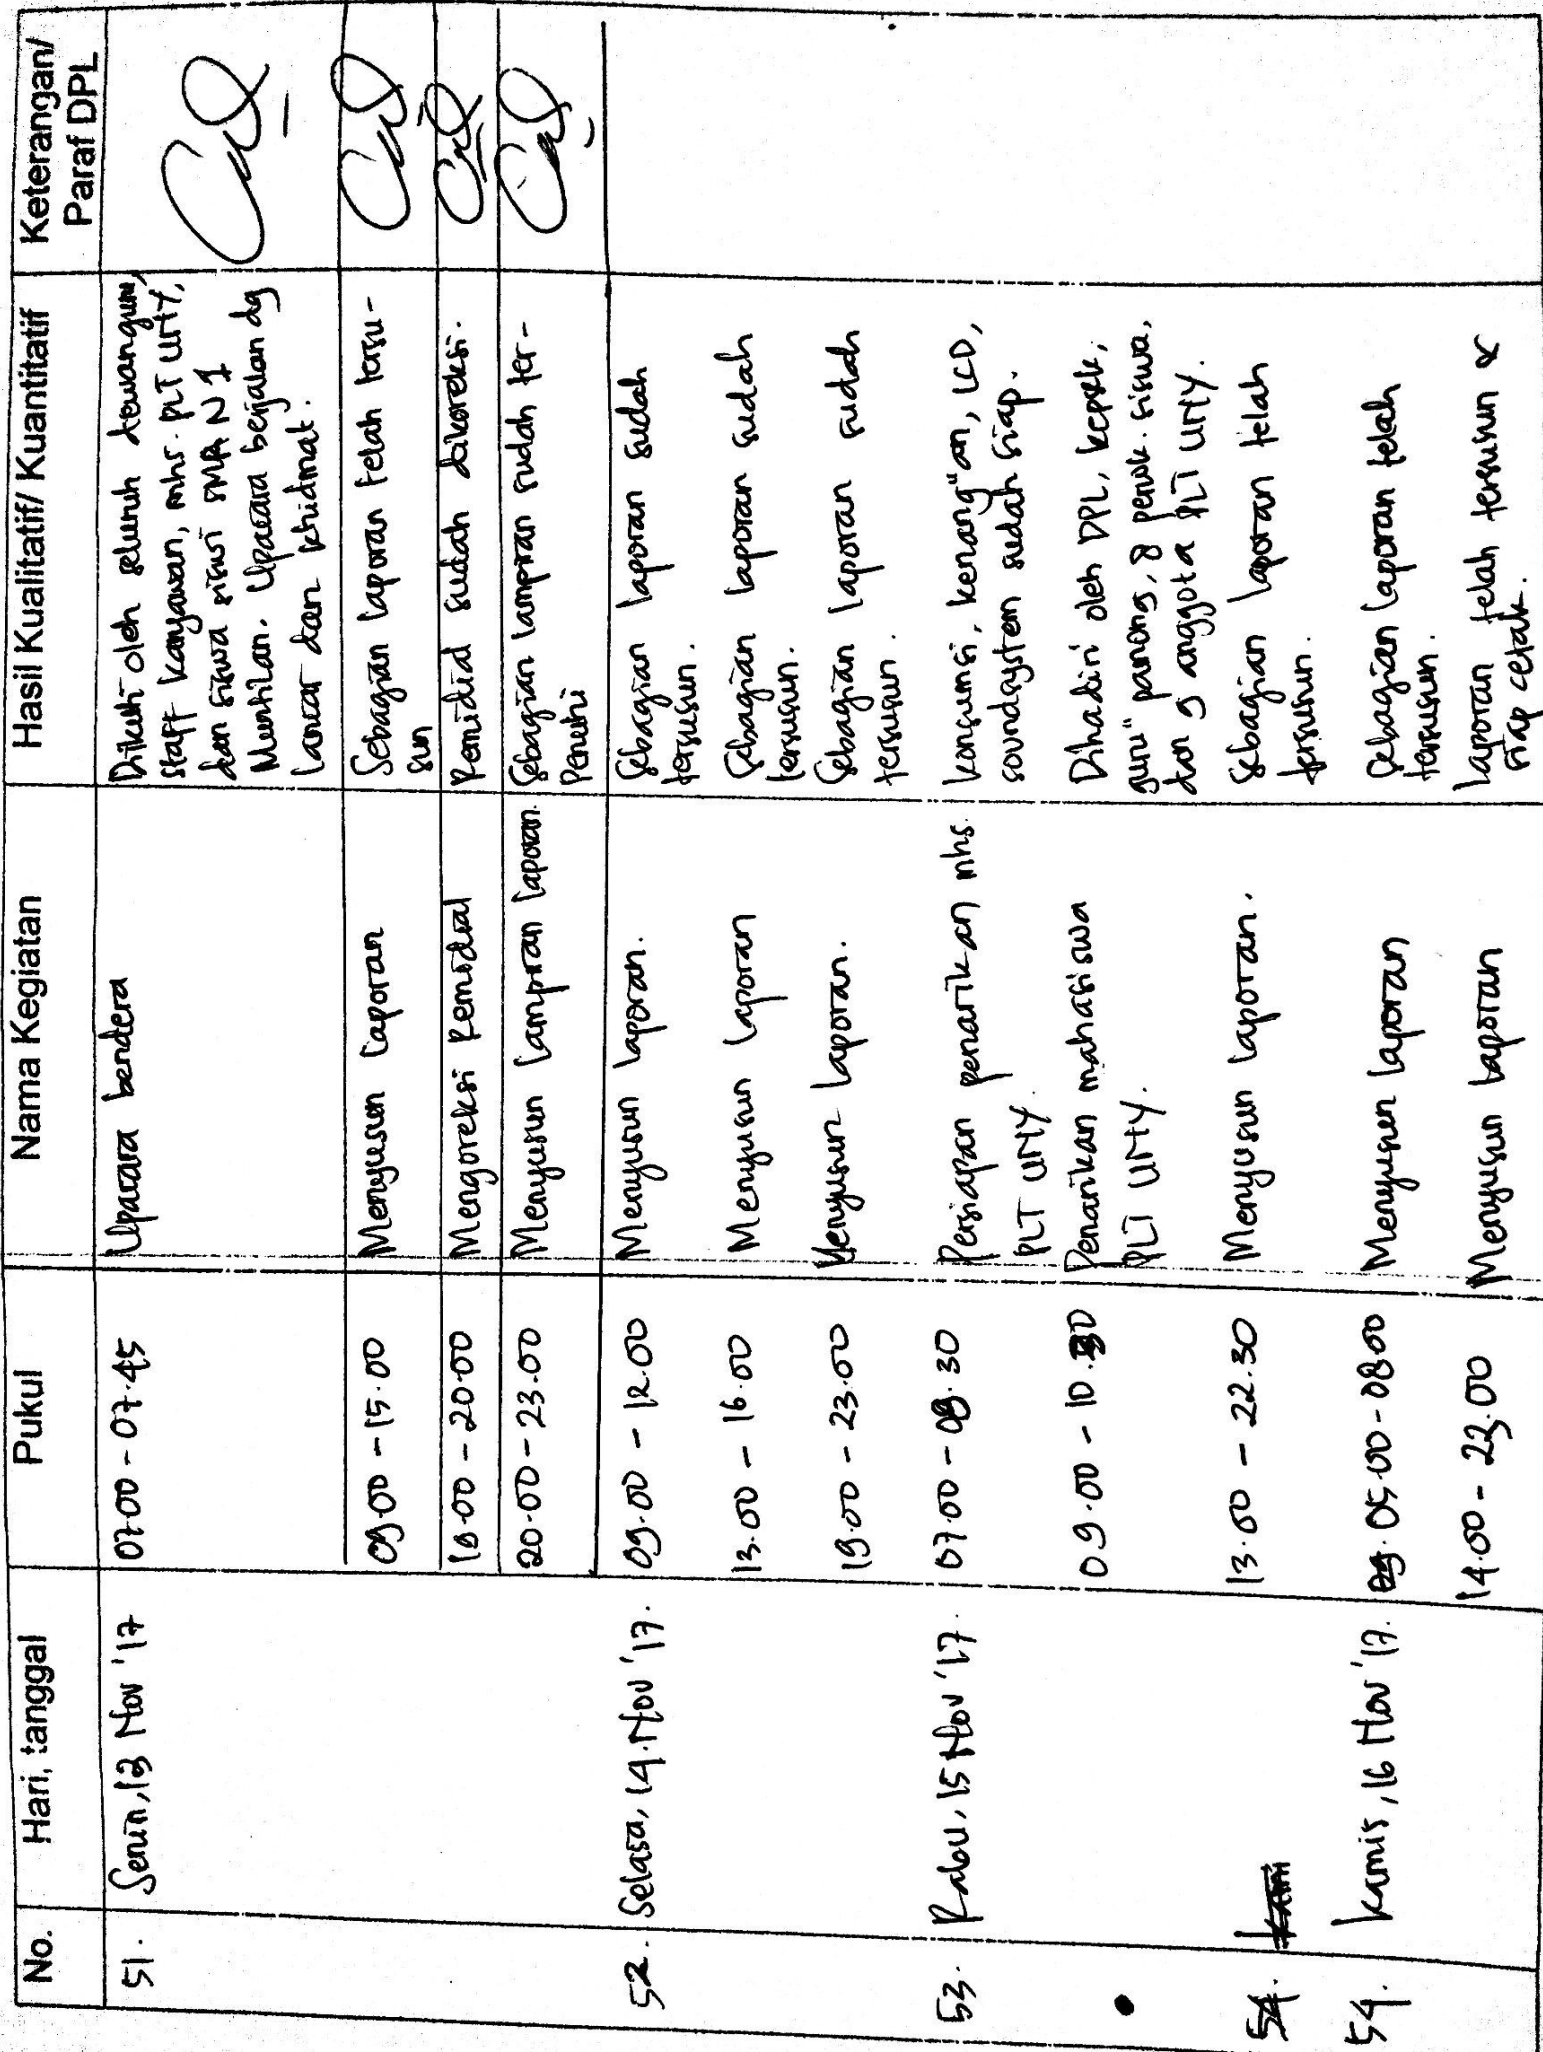 No. Hari, tanggal Pukul Nama Kegiatan Hasil Kualitatif/ Kuantitatif Keterangan/
Paraf DPL
51. Senin, 13 Nov '17 07.00 - 07.45 Upacara bendera Diikuti oleh seluruh dewan guru,
staff karyawan, mhs. PLT UNY,
dan siswa siswi SMA N 1
Muntilan. Upacara berjalan dg
lancar dan khidmat.
09.00 - 15.00 Menyusun laporan Sebagian laporan telah tersu-
sun
18.00 - 20.00 Mengoreksi Remidial Remidial sudah dikoreksi.
20.00 - 23.00 Menyusun lampiran laporan. Sebagian lampiran sudah ter-
penuhi
52. Selasa, 14 Nov '17. 09.00 - 12.00 Menyusun laporan. Sebagian laporan sudah
tersusun.
13.00 - 16.00 Menyusun laporan Sebagian laporan sudah
tersusun.
19.00 - 23.00 Menyusun laporan. Sebagian laporan sudah
tersusun.
53. Rabu, 15 Nov '17. 07.00 - 08.30 Persiapan penarikan mhs. konsumsi, kenang"an, LCD,
PLT UNY. soundsystem sudah siap.
09.00 - 10.30 Penarikan mahasiswa Dihadiri oleh DPL, kepsek,
PLT UNY. guru" pamong, 8 perwk. siswa,
dan 9 anggota PLT UNY.
54. 13.00 - 22.30 Menyusun laporan. Sebagian laporan telah
tersusun.
54. Kamis, 16 Nov '17. 05.00 - 08.00 Menyusun laporan Sebagian laporan telah
tersusun.
14.00 - 23.00 Menyusun laporan Laporan telah tersusun &
siap cetak.